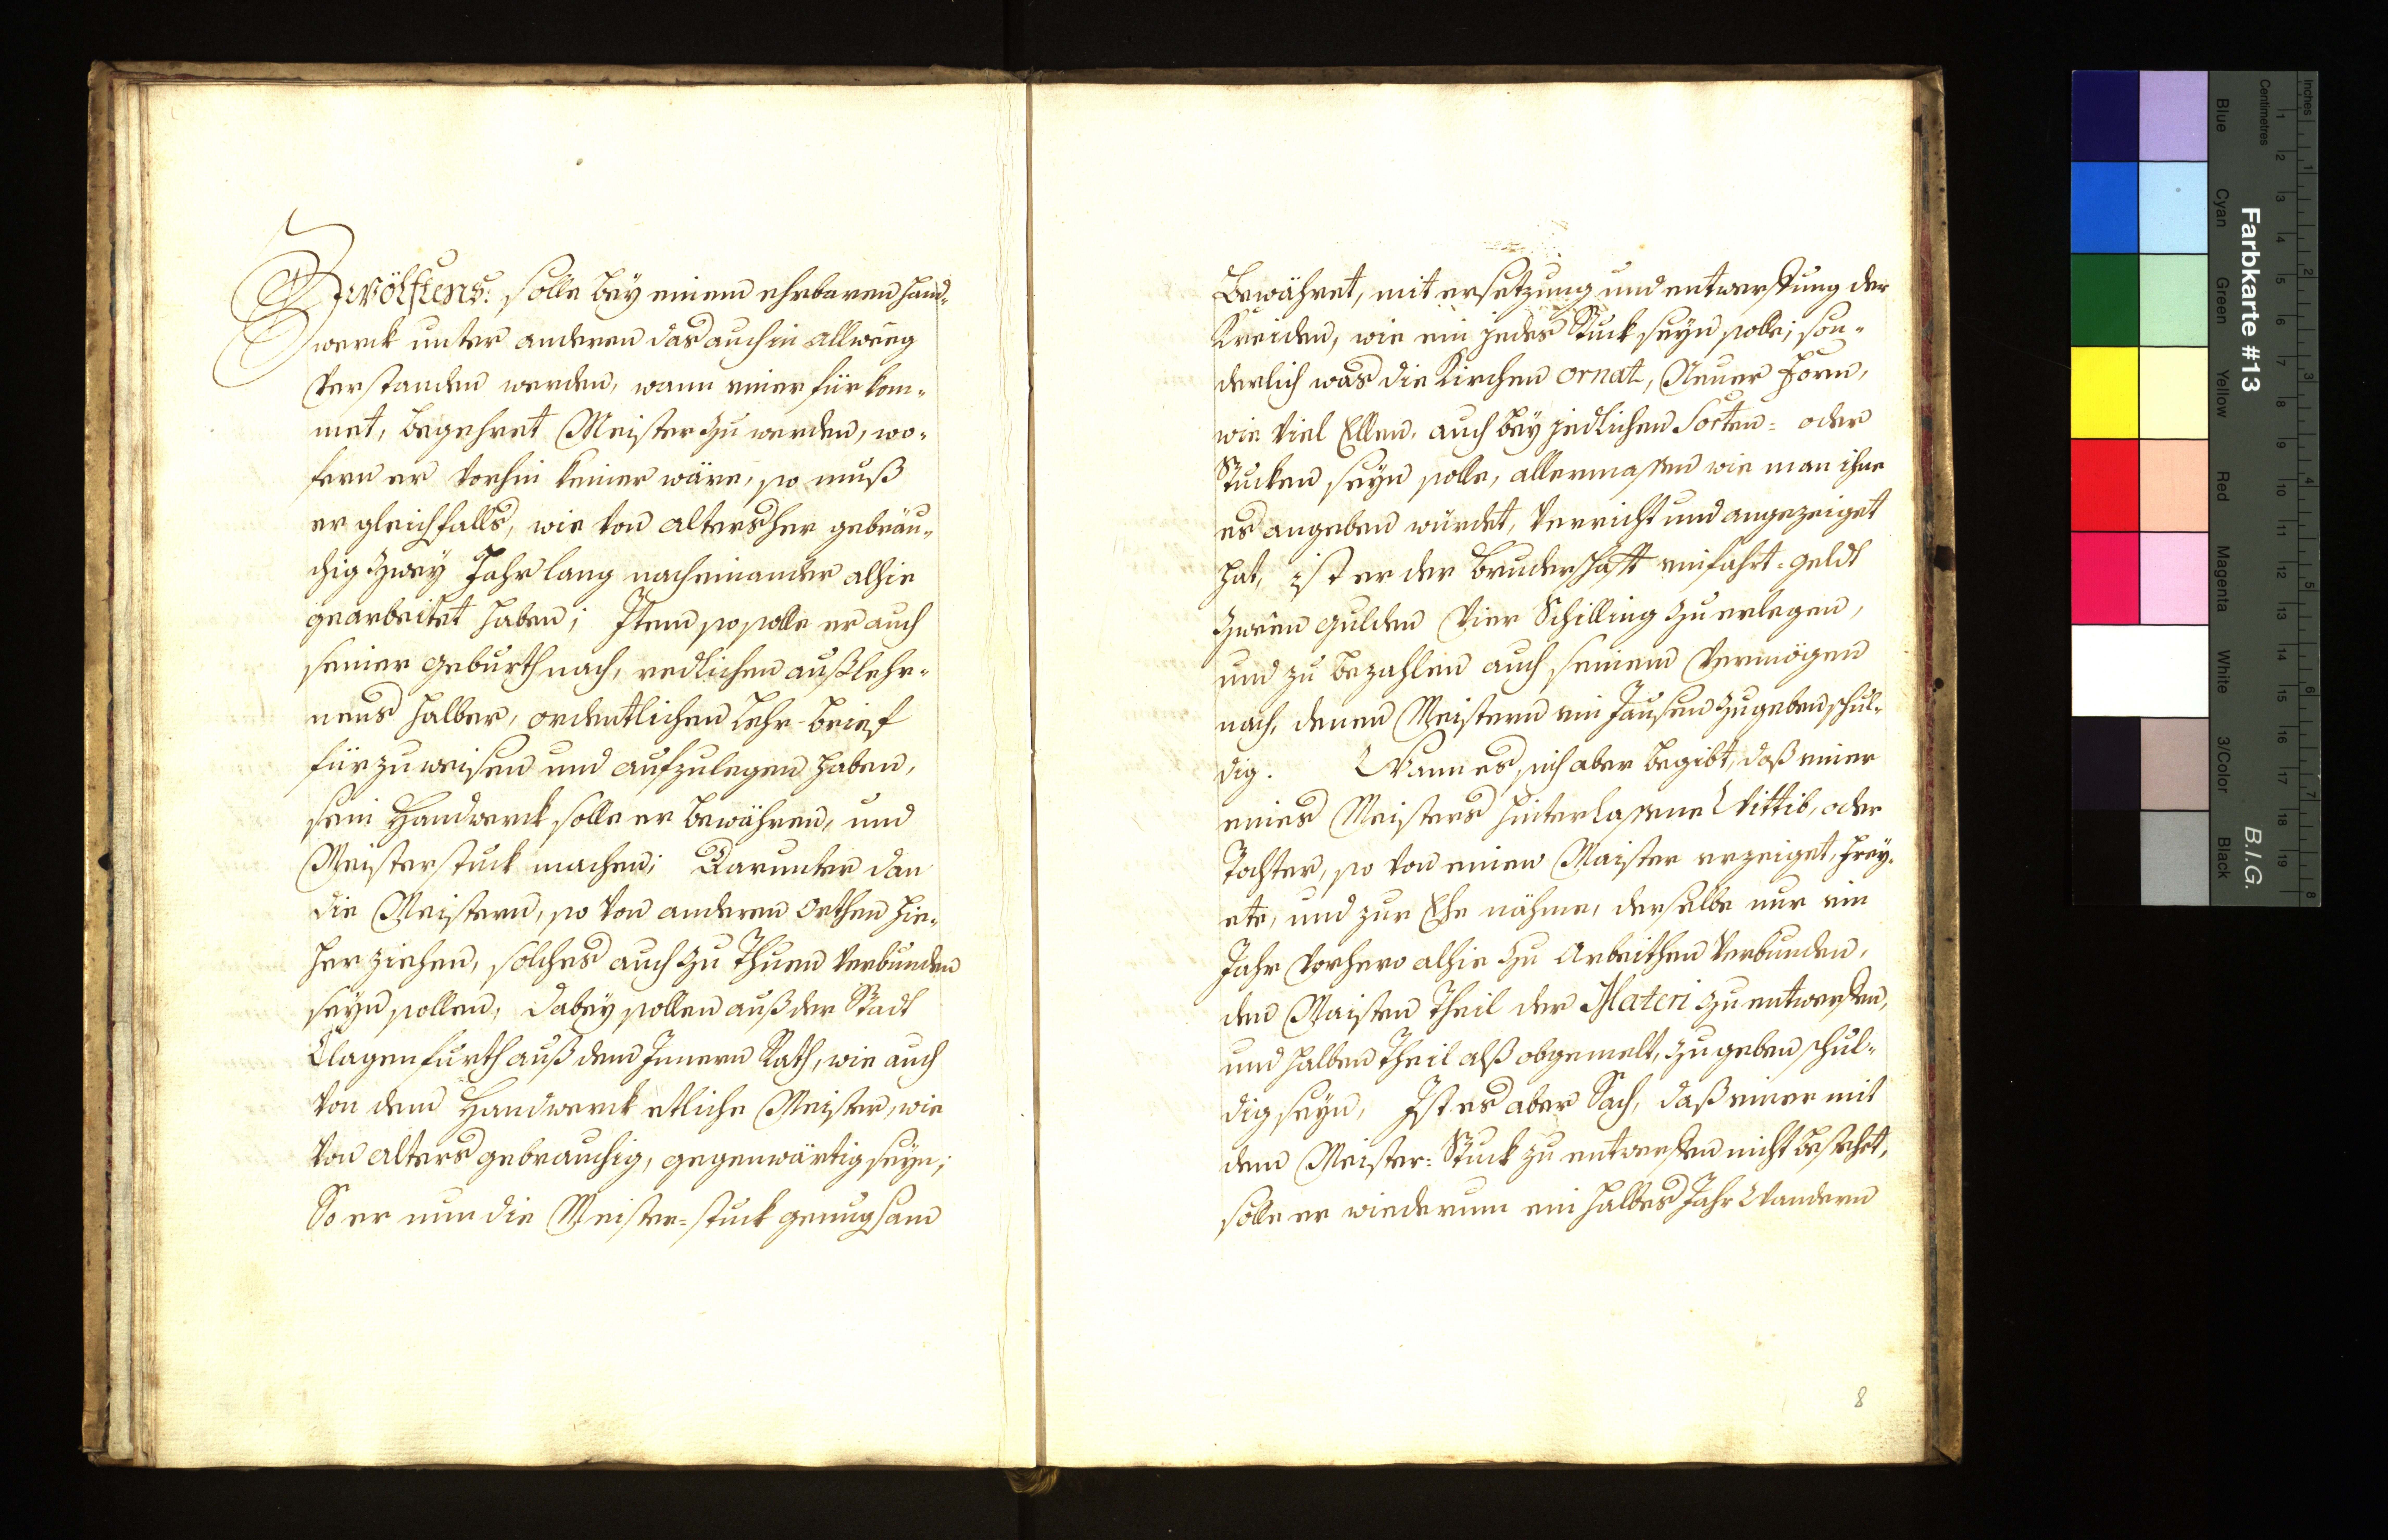 Zwölftens: solle bey einem ehrbaren Hand-
werck unter anderen das auch in allweeg
verstanden werden, wann einer fürkom-
met, begehret Meister zu werden, wo-
fern er vorhin keiner wäre, so muß
er gleichfalls, wie von altersher gebräu-
chig zwey Jahr lang nacheinander alhie
gearbeitet haben; Item so solle er auch
seiner geburth nach, redlichen außlehr-
nens halber, ordentlichen Lehr-brief
fürzuweisen und aufzulegen haben,
sein Handwerck solle er bewähren, und
Meisterstuck machen; Darunter dan
die Meistern, so von anderen orthen hie-
her ziehen, solches auch zu thuen verbunden
seyn sollen, dabey sollen auß der Stadt
Clagenfurth auß dem Innern Rath, wie auch
von dem Handwerck etliche Meister, wie
von alters gebrauchig, gegenwärtig seyn;
So er nun die Meister=stuck genugsam
bewähret, mit ersetzung und entwerffung der
Kreiden, wie ein jedes Stuck seyn solle; son-
derlich was die Kirchen ornat, Neuer Form,
wie viel Ellen, auch bey jedlichen Sorten= oder
Stucken seyn solle, allermassen wie man ihme
es angeben würdet, verricht und angezeiget
hat, ist er der bruderschafft einfahrt=geldt
zween gulden vier Schilling zu erlegen,
und zu bezahlen auch seinem vermögen
nach, denen Meistern ein Jausen zugeben schul-
dig. Wann es sich aber begibt, daß einer
eines Meisters hinterlassene Wittib, oder
Tochter, so von einem Maister erzeiget, frey-
ete, und zur Ehe nähme, derselbe nur ein
Jahr vorhero alhie zu arbeithen verbunden,
den Maisten theil der Materi zu entwerffen,
und halben theil alß obgemelt, zu geben schul-
dig seyn, Ist es aber Sach, daß einer mit
dem Meister=Stuck zu entwerffen nicht bestehet,
solle er wiederum ein halbes Jahr Wandern
8
Inches
Centimetres
1 2 3 4 5 6 7 8 9 10 11 12 13 14 15 16 17 18 19
1 2 3 4 5 6 7 8
Farbkarte #13
B.I.G.
Blue
Cyan
Green
Yellow
Red
Magenta
White
3/Color
Black